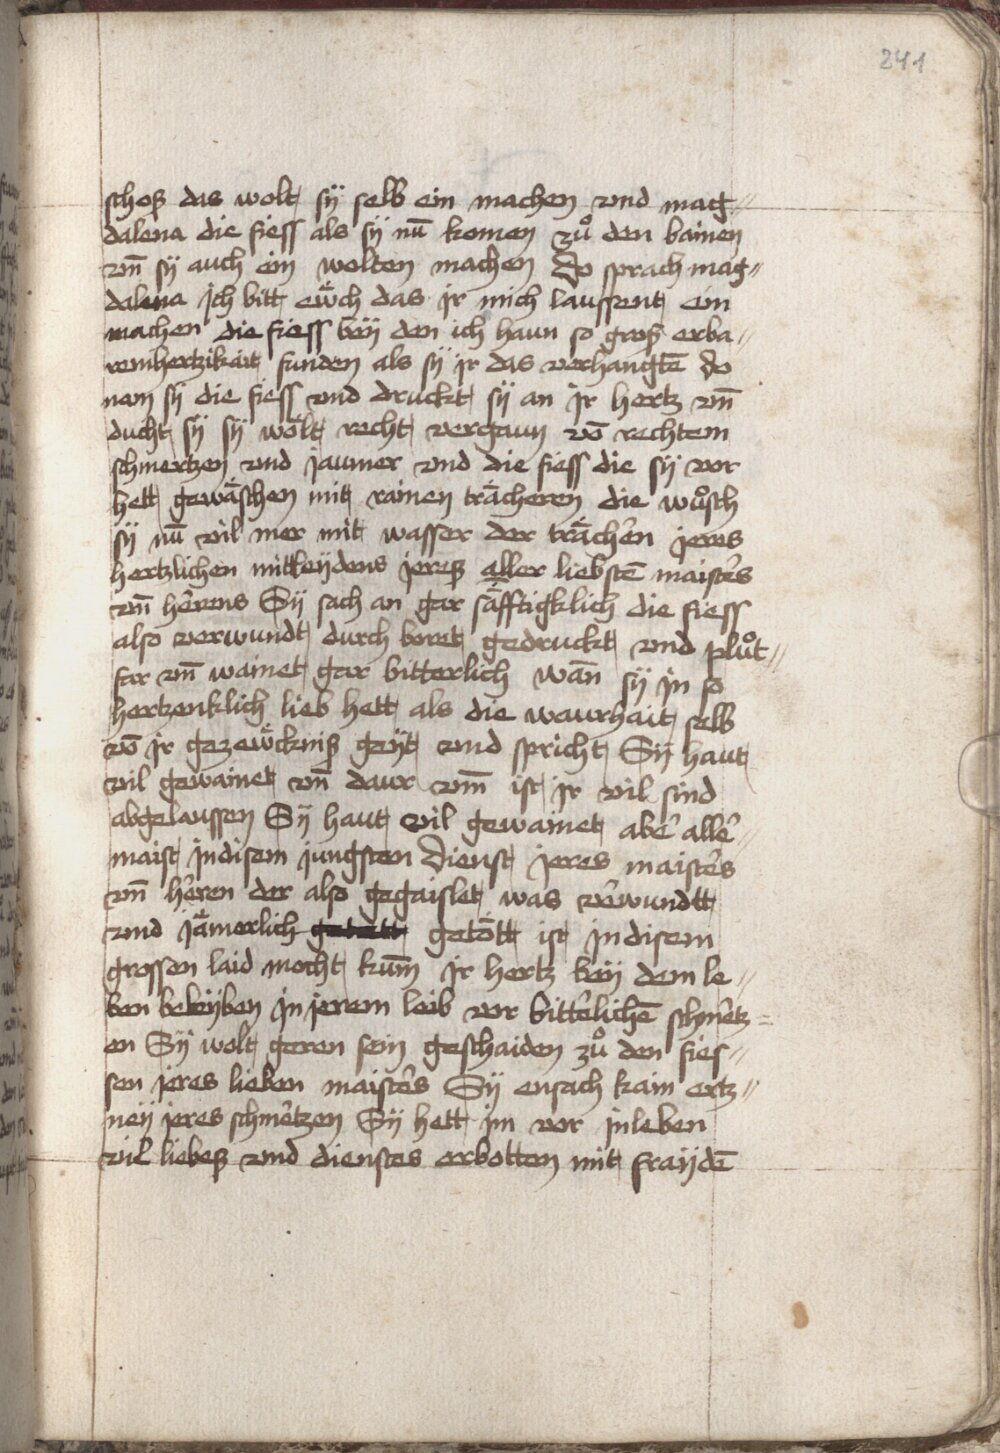 241
schoß das wolt sÿ selb ein machen vnd mag⸗
dalena die fiess als sÿ nū komen zuͦ den bainen
vn̄ sÿ auch ein wolten machen Do sprach mag⸗
dalena Ich bitt ew̋ch das ir mich laussent ein
machen die fiess beÿ den ich haun so groß erba⸗
remhertzikait funden als sÿ ir das verhangtē do
nam sÿ die fiess vnd druckt sÿ an ir hertz vn̄
ducht sÿ sÿ wőlt recht vergaun vō rechtem
schmertzen vnd jaumer vnd die fiess die sÿ vor
hett gewa̋schen mit rainen tra̋cheren die wuͦsch
sÿ nū vil mer mit wasser der tra̋chen jeres
hertzlichen mitleÿdens jereß aller liebstē maisters
vn̄ herens Sÿ sach an gar sa̋fftigklich die fiess
also verwundt durch boret gedruckt vnd pluͦt⸗
far vn̄ wainet gar bitterlich wān sÿ in so
hertzenklich lieb hett als die waurhait selb
vō ir gezew̋ckniß geÿt vnd spricht Sÿ haut
vil gewainet vn̄ daur vm̄ ist ir vil sind
abgelaussen Sÿ haut vil gewainet aber aller⸗
maist in disem jungsten dienst jeres maisters
vn̄ heren der also gegaislet was verwundtt
vnd ja̋merlich getett getőtt ist in disem
grossen laid mocht kum̄ ir hertz beÿ dem le⸗
ben beleÿben in jerem leib vor bitterlichē schmertz⸗
en Sÿ wolt geren sein geschaiden zuͦ den fies⸗
sen jeres lieben maisters Sÿ ensach kain ertz⸗
neÿ jeres schmertzen Sÿ hett im vor in leben
vil liebeß vnd dienstes erbotten mit fraÿdē